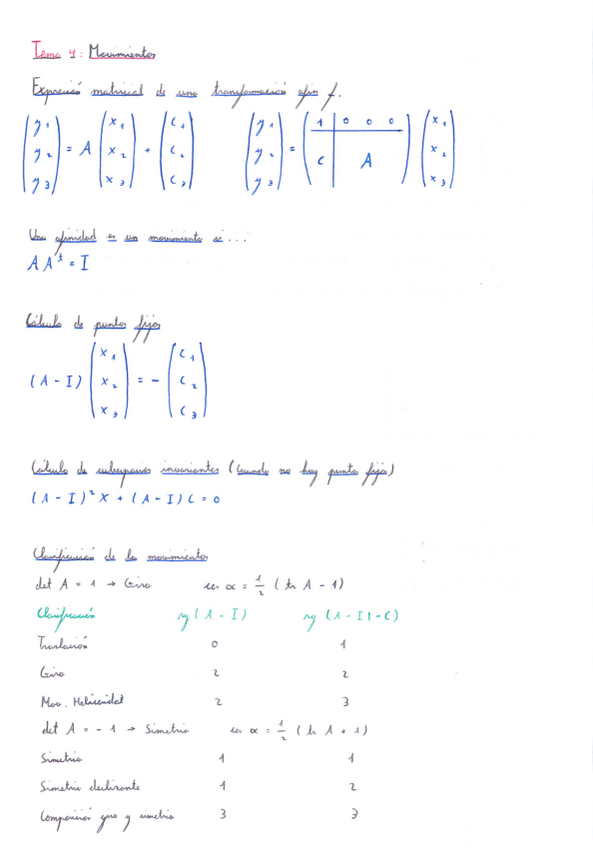 Tema 4: Movimientos
Expresión matricial de una transformación afín f.
(y1 y2 y3) = A (x1 x2 x3) + (c1 c2 c3)    (y1 y2 y3) = (1 0 0 0 / C A) (x1 x2 x3)
Una afinidad es un movimiento si...
A A^t = I
Cálculo de puntos fijos
(A - I) (x1 x2 x3) = - (c1 c2 c3)
Cálculo de subespacios invariantes (Cuando no hay puntos fijos)
(A - I)² X + (A - I) C = 0
Clasificación de los movimientos
det A = 1 → Giro    cos α = 1/2 (tr A - 1)
Clasificación    rg (A - I)    rg (A - I | - C)
Traslación    0    1
Giro    2    2
Mov. Helicoidal    2    3
det A = - 1 → Simetría    cos α = 1/2 (tr A + 1)
Simetría    1    1
Simetría deslizante    1    2
Composición giro y simetría    3    3